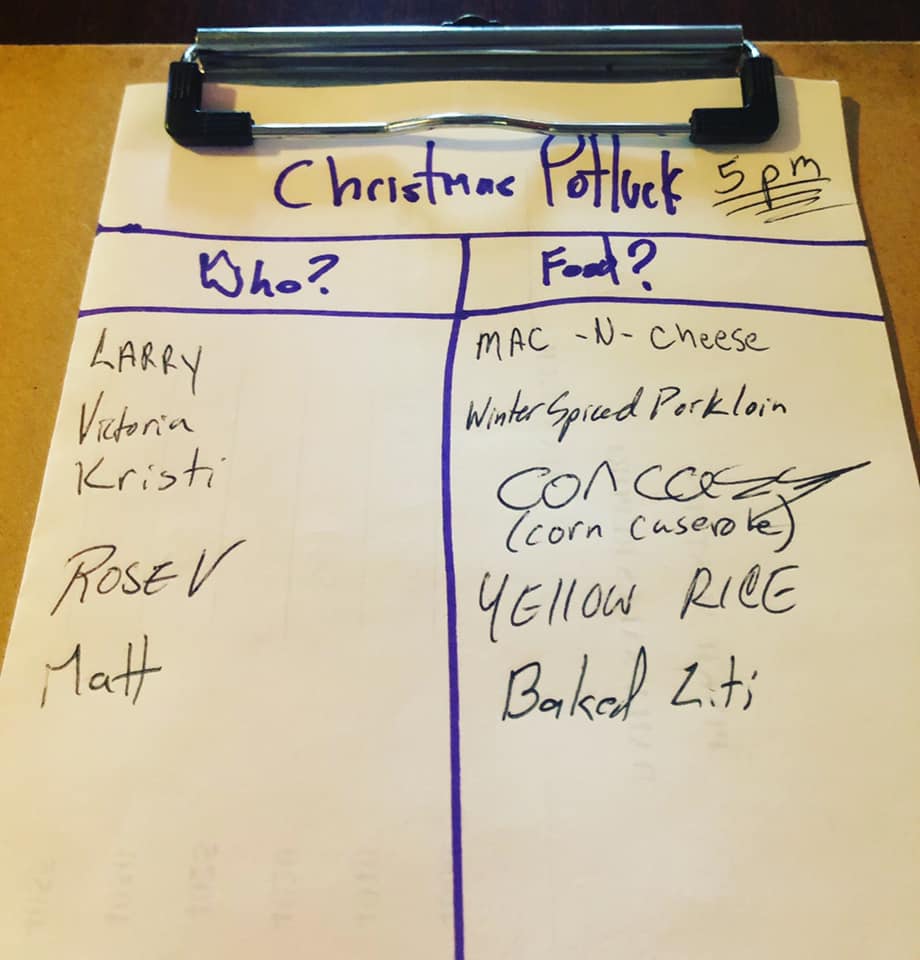 Christmas Potluck 5pm
Who? Food?
LARRY MAC -N- Cheese
Victoria Winter Spiced Porkloin
Kristi
(corn caserole)
ROSE V YEllOW RICE
Matt Baked Ziti